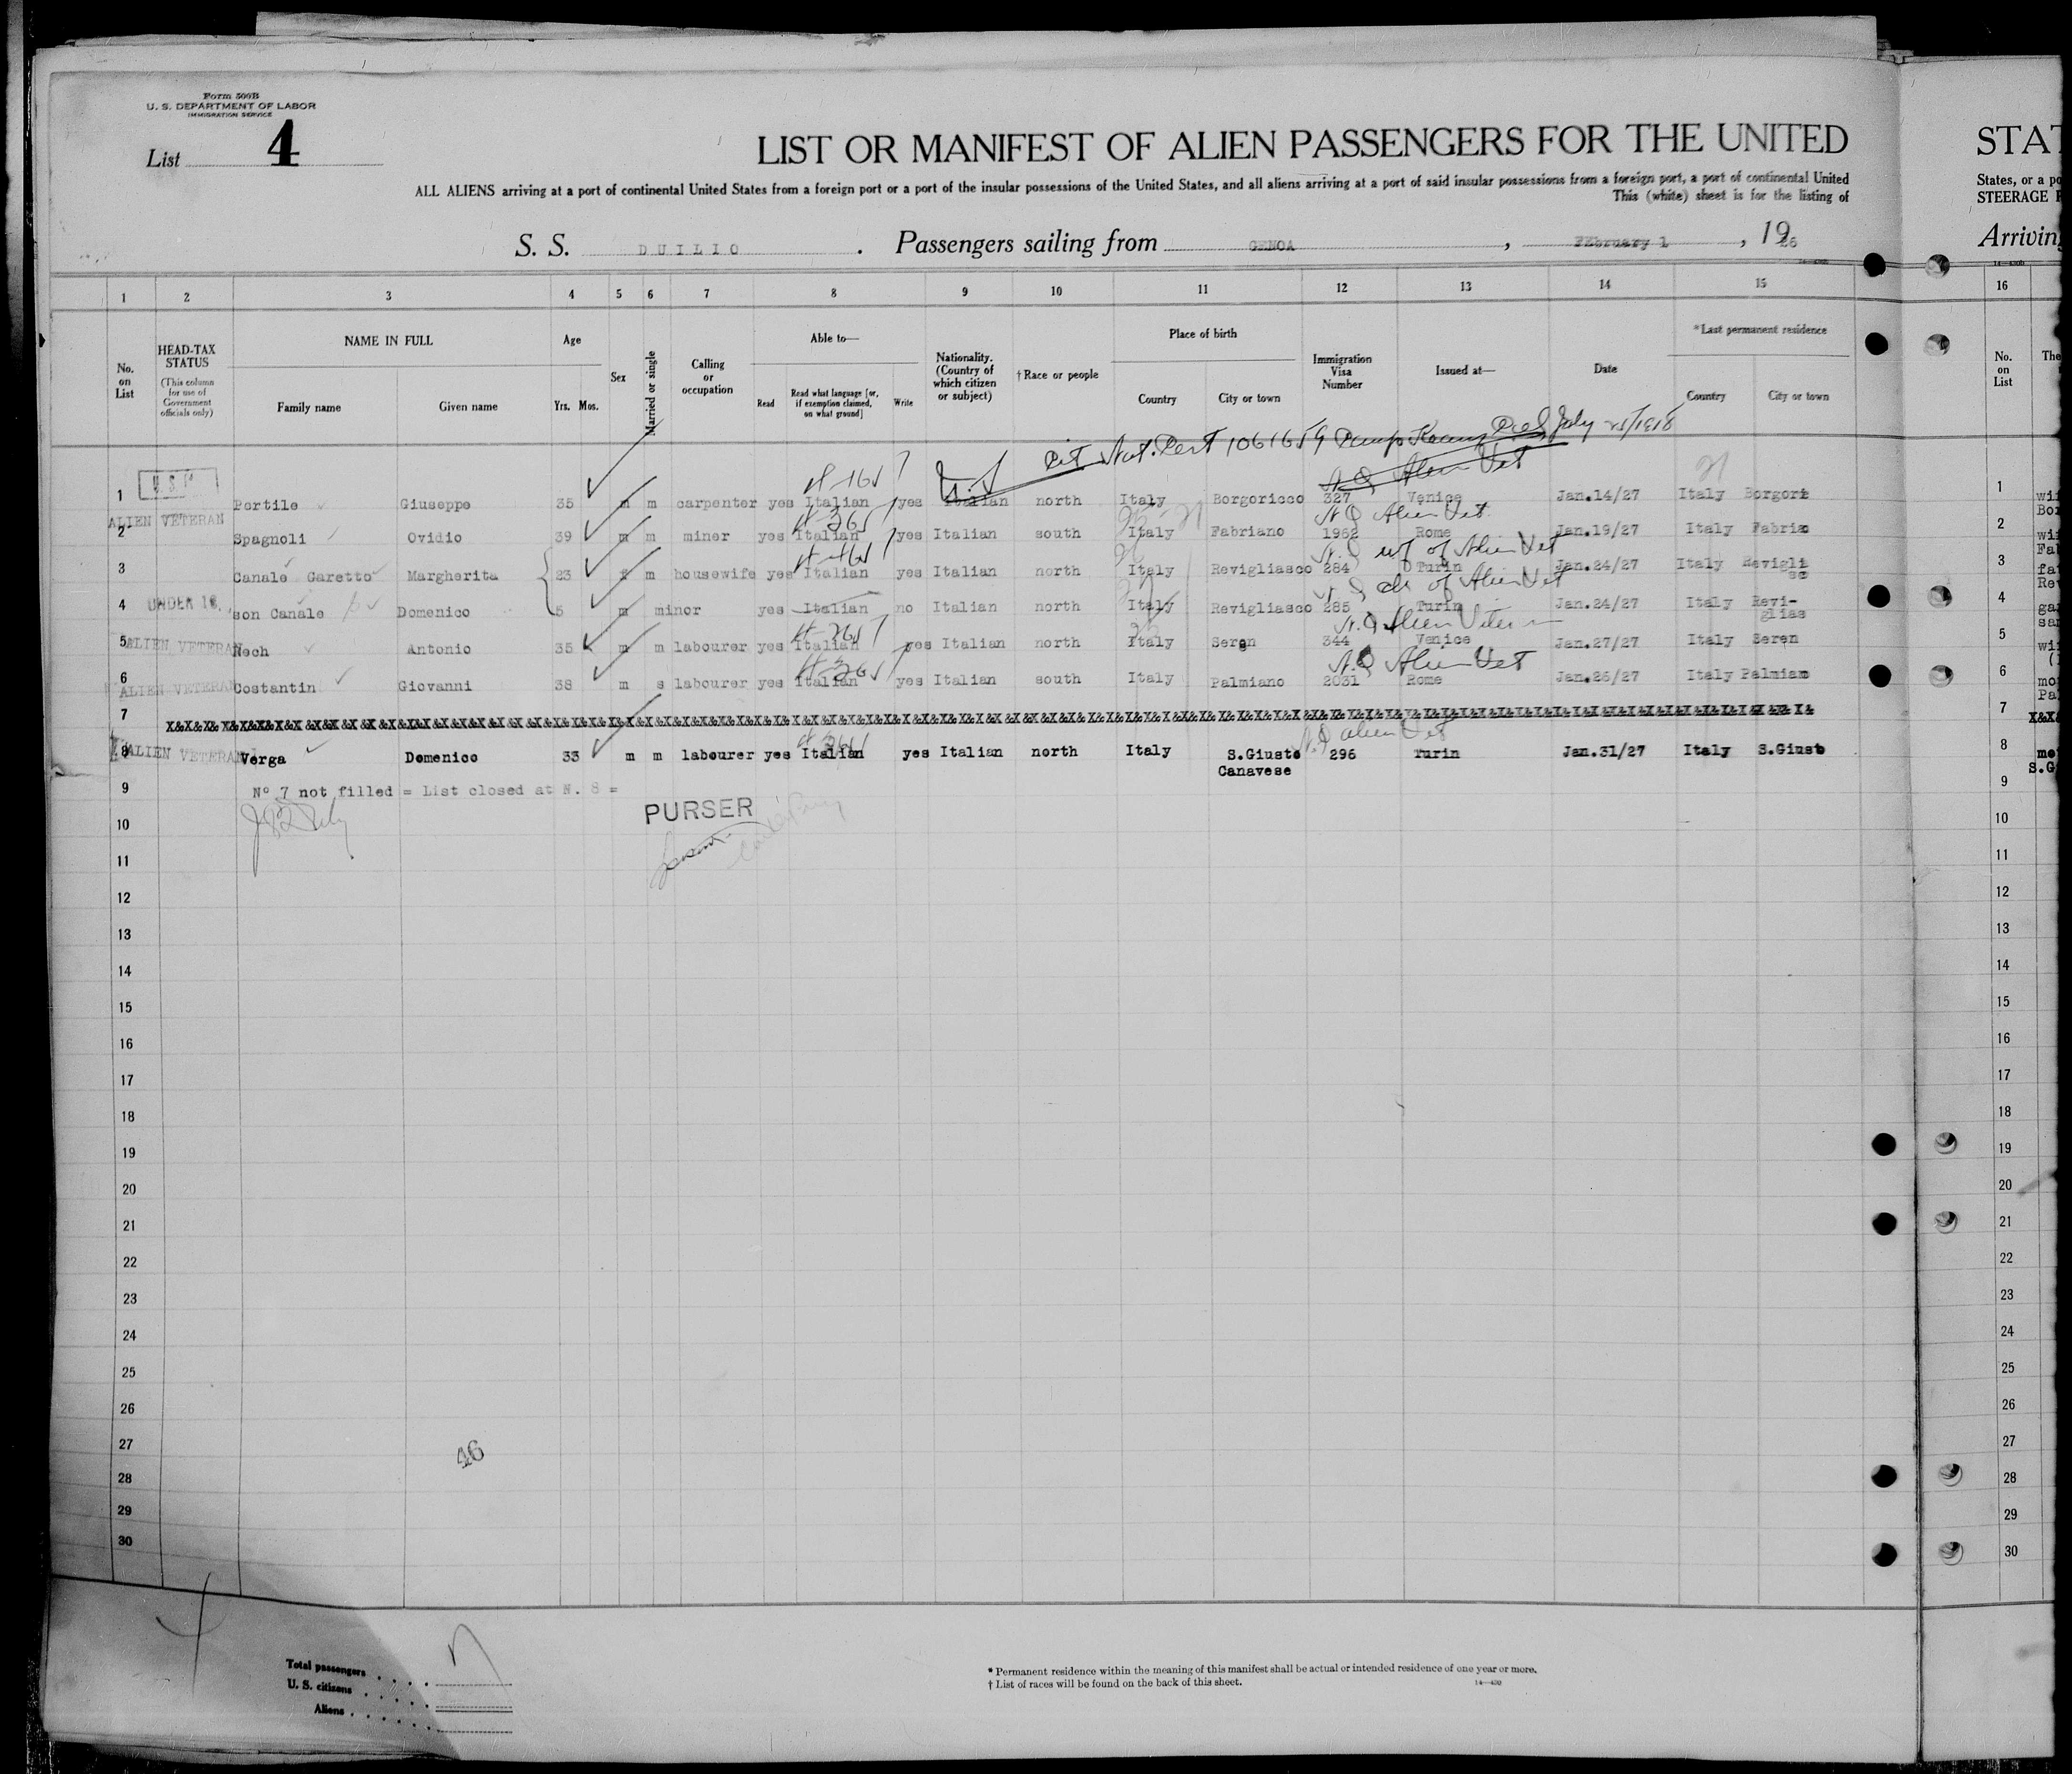 Form 500B
U. S. DEPARTMENT OF LABOR
IMMIGRATION SERVICE
List 4
LIST OR MANIFEST OF ALIEN PASSENGERS FOR THE UNITED
ALL ALIENS arriving at a port of continental United States from a foreign port or a port of the insular possessions of the United States, and all aliens arriving at a port of said insular possessions from a foreign port, a port of continental United
This (white) sheet is for the listing of
S. S. DUILIO . Passengers sailing from GENOA , FEbruary 1 , 19
1 2 3 4 5 6 7 8 9 10 11 12 13 14 15
No. on List
HEAD-TAX STATUS
(This column for use of Government officials only)
NAME IN FULL
Family name Given name
Age
Yrs. Mos.
Sex
Married or single
Calling or occupation
Able to—
Read
Read what language [or, if exemption claimed, on what ground]
Write
Nationality. (Country of which citizen or subject)
†Race or people
Place of birth
Country City or town
Immigration Visa Number
Issued at—
Date
*Last permanent residence
Country City or town
Nat. Cert 1061659 July 25/1918
Alien Vet
1 U.S.C Portile Giuseppe 35 m m carpenter yes Italian yes Italian north Italy Borgoricco 327 Venice Jan.14/27 Italy Borgori
N.Q Alien Vet.
2 ALIEN VETERAN Spagnoli Ovidio 39 m m miner yes Italian yes Italian south Italy Fabriano 1962 Rome Jan.19/27 Italy Fabriao
N.Q wf of Alien Vet
3 Canale Garetto Margherita 23 f m housewife yes Italian yes Italian north Italy Revigliasco 284 Turin Jan.24/27 Italy Revigli
sc
N.Q ch of Alien Vet
4 UNDER 16. son Canale Domenico 5 m minor yes Italian no Italian north Italy Revigliasco 285 Turin Jan.24/27 Italy Revi-
glias
N.Q Alien Veteran
5 ALIEN VETERAN Nech Antonio 35 m m labourer yes Italian yes Italian north Italy Seren 344 Venice Jan.27/27 Italy Seren
N.Q Alien Vet
6 ALIEN VETERAN Costantin Giovanni 38 m s labourer yes Italian yes Italian south Italy Palmiano 2031 Rome Jan.26/27 Italy Palmiano
7
N.Q alien Vet
8 ALIEN VETERAN Verga Domenico 33 m m labourer yes Italian yes Italian north Italy S.Giusto 296 Turin Jan.31/27 Italy S.Giusto
Canavese
9 No 7 not filled = List closed at N. 8 =
PURSER
10
11
12
13
14
15
16
17
18
19
20
21
22
23
24
25
26
27
46
28
29
30
Total passengers
U. S. citizens
Aliens
* Permanent residence within the meaning of this manifest shall be actual or intended residence of one year or more.
† List of races will be found on the back of this sheet.
14—430
STAT
States, or a po
STEERAGE P
Arriving
16
No. on List
The
1
2
3
4
5
6
7
8
9
10
11
12
13
14
15
16
17
18
19
20
21
22
23
24
25
26
27
28
29
30